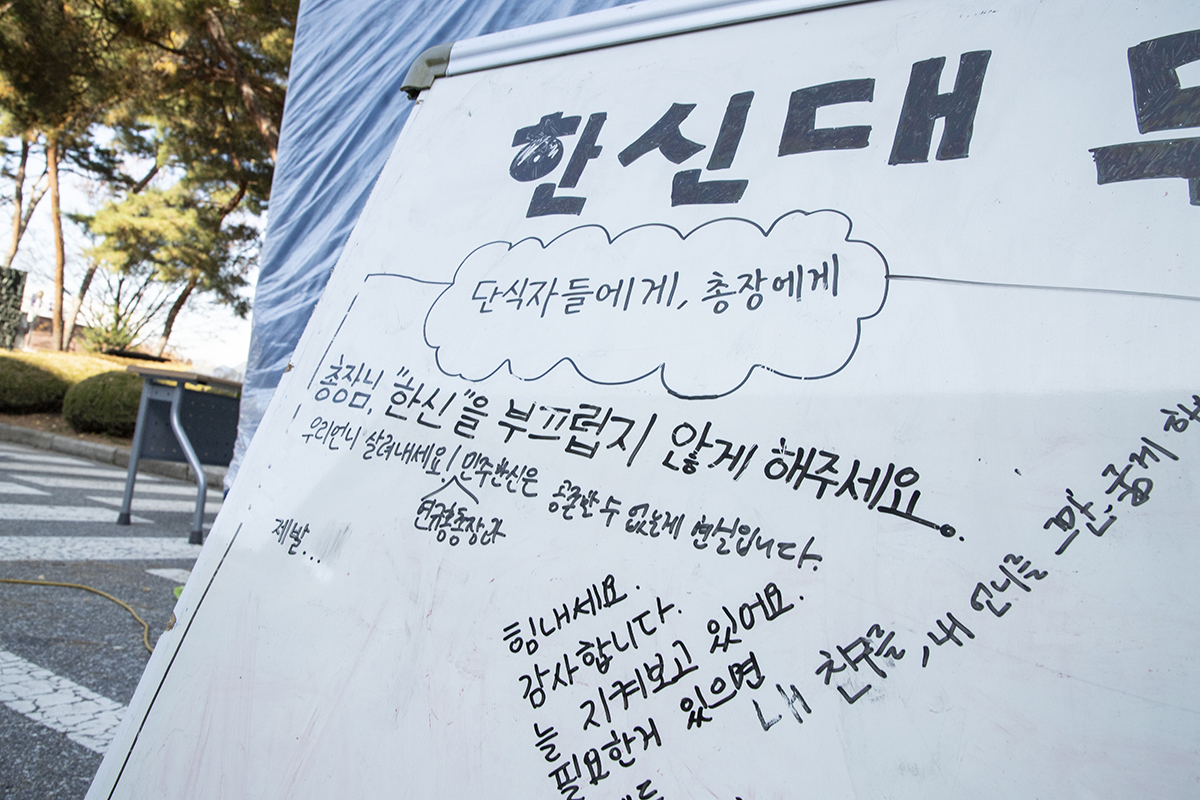 한신대
단식자들에게, 총장에게
총장님, "한신"을 부끄럽지 않게 해주세요.
우리언니 살려내세요! 민주한신은 공존할 수 없는게 현실입니다.
연규홍총장과
제발...
힘내세요.
감사합니다.
늘 지켜보고 있어요.
필요한게 있으면
내 친구를, 내 언니를